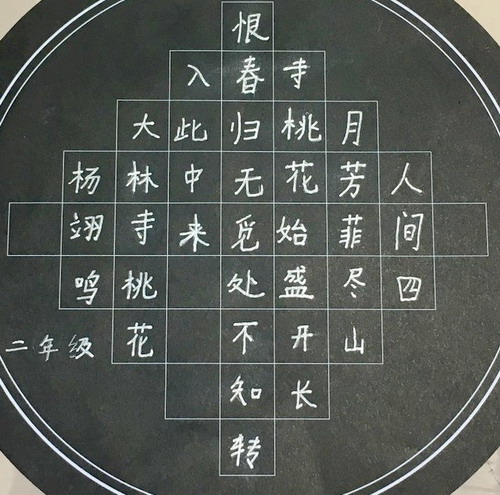 人间四
月芳菲尽山
寺桃花始盛开长
恨春归无觅处不知转
入此中来
大林寺桃花
杨翊鸣
二年级